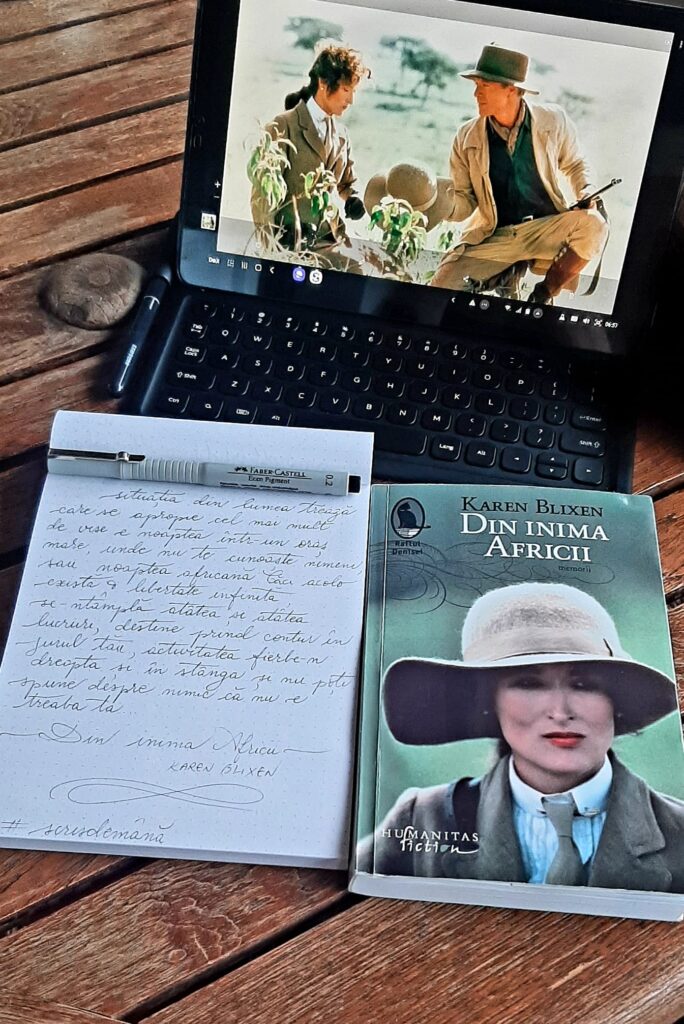 DeX
06:57
Tab Q W E R T Y U I O P
Caps Lock A S D F G H J K L Enter
Shift Z X C V B N M Shift
Ctrl Alt Lang Alt Ctrl
FABER-CASTELL
Ecco Pigment 0.2
situatia din lumea trează
care se apropie cel mai mult
de vise e noaptea într-un oraș
mare, unde nu te cunoaște nimeni
sau noaptea africană. Căci acolo
există o libertate infinită
se-ntâmpla atâtea si atâtea
lucruri, destine prind contur în
jurul tău, activitatea fierbe-n
dreapta si în stânga și nu poți
spune despre nimic că nu e
treaba ta
Din inima Africii
KAREN BLIXEN
# scrisdemână
Raftul Denisei
KAREN BLIXEN
DIN INIMA
AFRICII
memorii
HUMANITAS
fiction